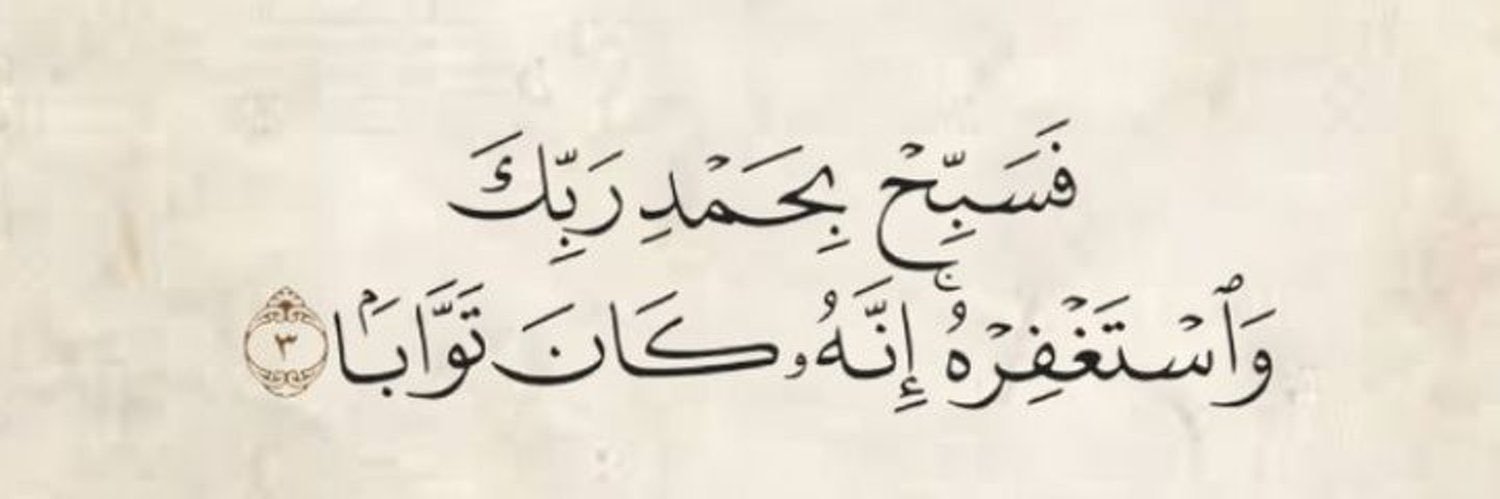 فَسَبِّحۡ بِحَمۡدِ رَبِّكَ
وَٱسۡتَغۡفِرۡهُۚ إِنَّهُۥ كَانَ تَوَّابَۢا ٣